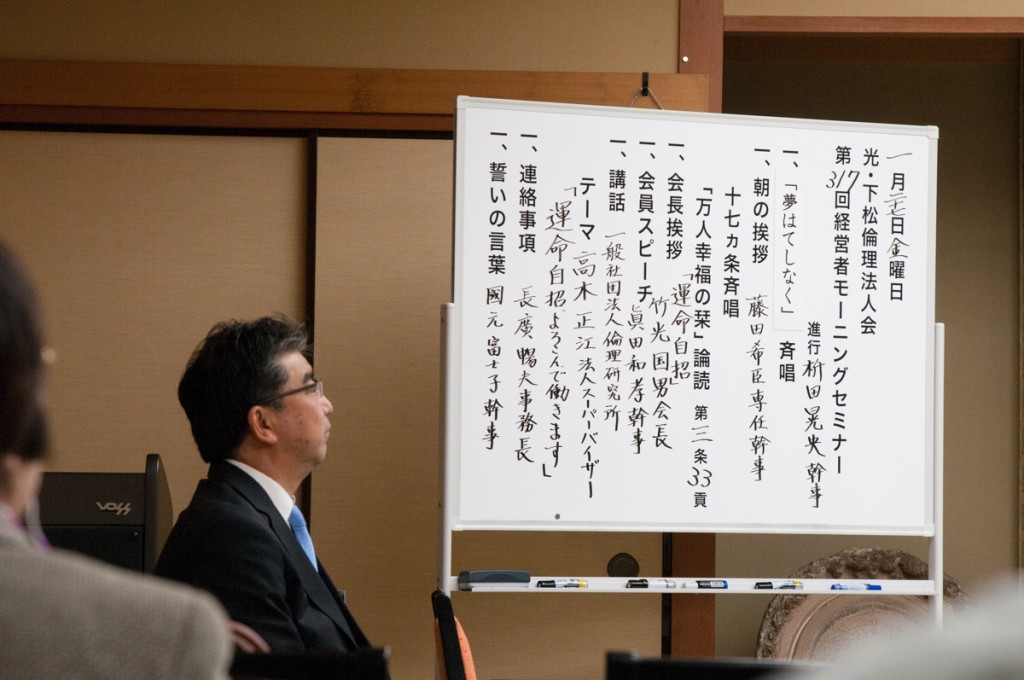 一月二十七日金曜日
光・下松倫理法人会
第317回経営者モーニングセミナー
進行 柳田晃央幹事
一、「夢はてしなく」斉唱
一、朝の挨拶 藤田希臣専任幹事
十七カ条斉唱
「万人幸福の栞」論読 第三条33頁
「運命自招」
一、会長挨拶 竹光国男会長
一、会員スピーチ 眞田和孝幹事
一、講話 一般社団法人倫理研究所
高木正江法人スーパーバイザー
テーマ
「運命自招、よろこんで働きます」
一、連絡事項 長廣暢夫事務長
一、誓いの言葉 國元富士子幹事
VOSS